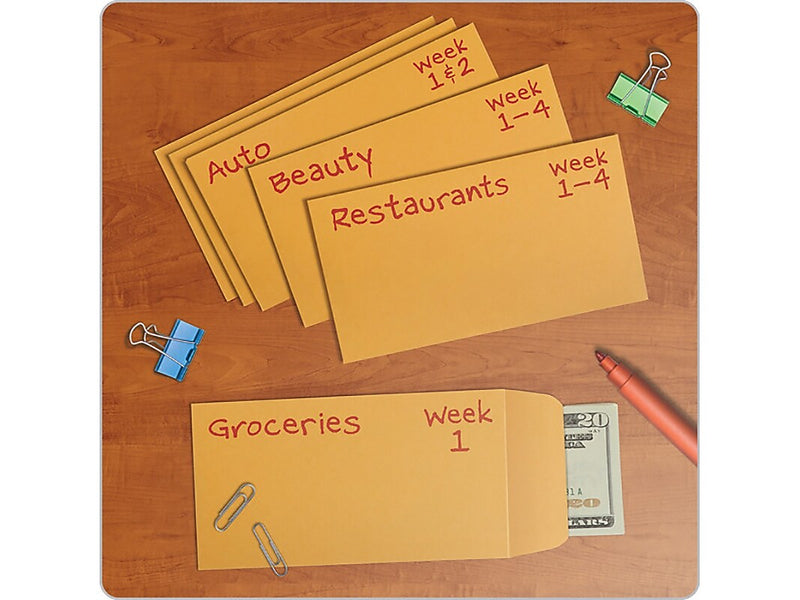 Week
1 & 2
Auto
Week
1-4
Beauty
Week
1-4
Restaurants
Groceries
Week
1
20